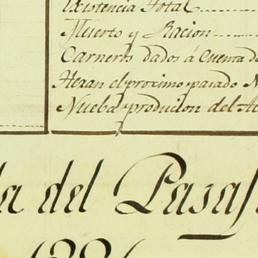 Existencia Total
Muerto y Racion
Carneros dados á Cuenta de
Heran el proximo parado
Nueba produicon del
del Pasa